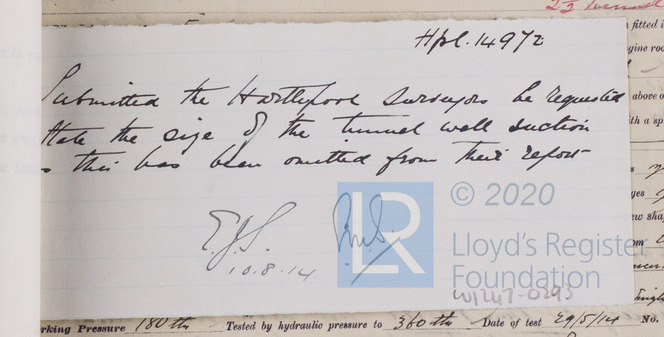 Hpl. 14972
Submitted the Hartlepool Surveyors be requested
state the size of the tunnel well suction
this has been omitted from their report
E.J.S.
10.8.14
LR
© 2020
Lloyd's Register
Foundation
W1247-0293
fitted i
gine roo
above o
ith a sp
ew sha
rking Pressure 180 lb Tested by hydraulic pressure to 360 lb Date of test 29/5/14 No.